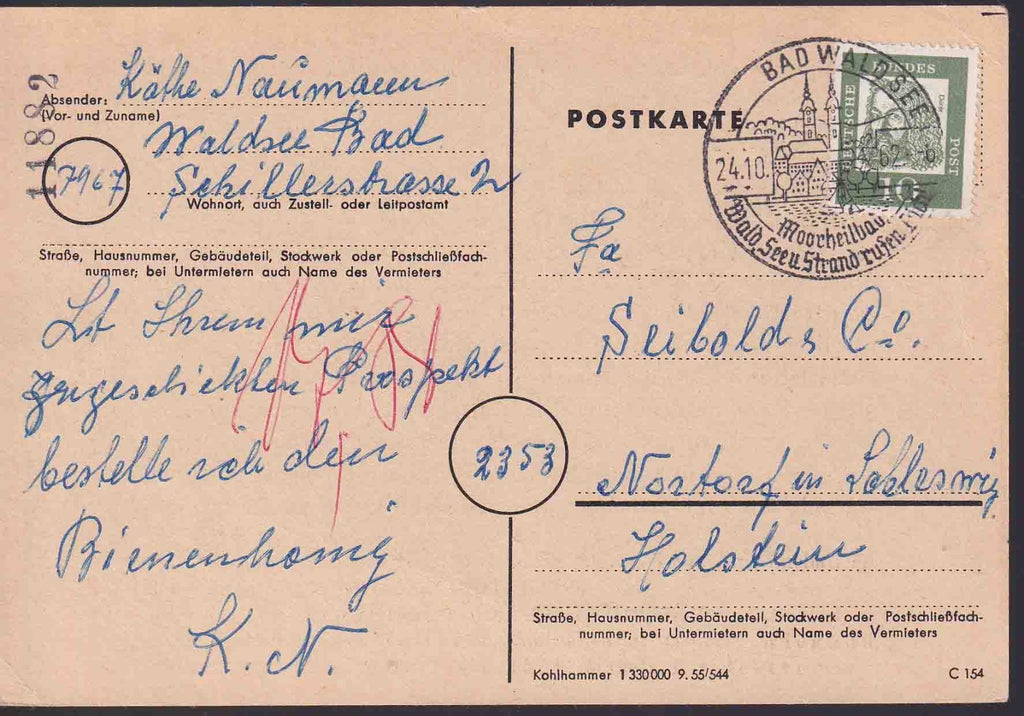 11882
Käthe Naumann
Absender:
(Vor- und Zuname)
Waldsee Bad
7967
Schillerstrasse 2
Wohnort, auch Zustell- oder Leitpostamt
Straße, Hausnummer, Gebäudeteil, Stockwerk oder Postschließfach-
nummer; bei Untermietern auch Name des Vermieters
Lt Ihrem mir
zugeschickten Prospekt
bestelle ich den
Bienenhonig
K. N.
POSTKARTE
BAD WALDSEE
24.10.62
b
Moorheilbad
Wald, See u. Strand rufen
DEUTSCHE
BUNDES
POST
10
Fa
Seibold & Co.
2353
Nortorf in Schleswig
Holstein
Straße, Hausnummer, Gebäudeteil, Stockwerk oder Postschließfach-
nummer; bei Untermietern auch Name des Vermieters
Kohlhammer 1 330 000 9. 55/544
C 154